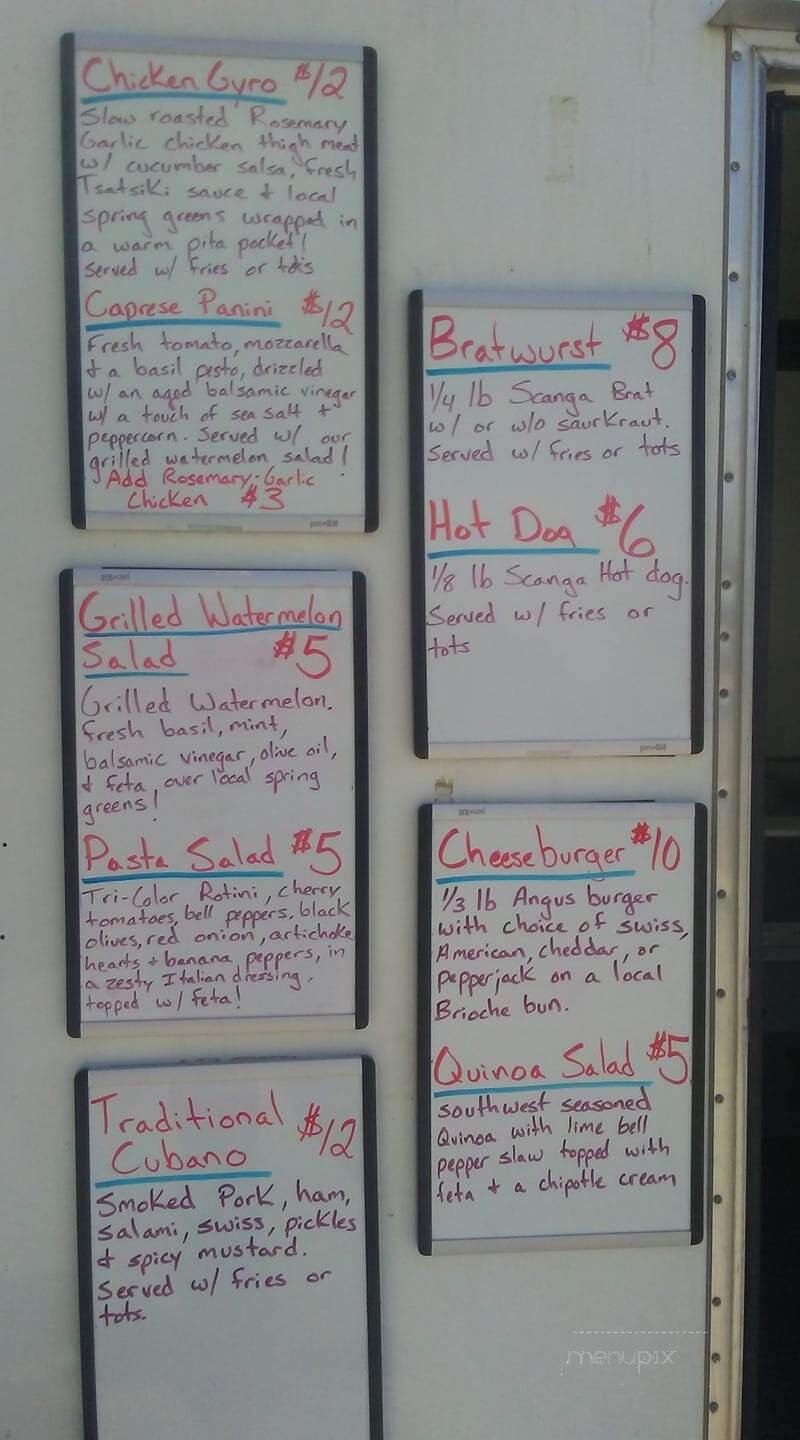 Chicken Gyro $12
Slow roasted Rosemary
Garlic chicken thigh meat
w/ cucumber salsa, fresh
Tsatsiki sauce + local
spring greens wrapped in
a warm pita pocket!
Served w/ fries or tots
Caprese Panini $12
Fresh tomato, mozzarella
+ a basil pesto, drizzled
w/ an aged balsamic vinegar
w/ a touch of sea salt +
peppercorn. Served w/ our
grilled watermelon salad!
Add Rosemary-Garlic
Chicken $3
Grilled Watermelon
Salad $5
Grilled Watermelon.
fresh basil, mint,
balsamic vinegar, olive oil,
+ feta, over local spring
greens!
Pasta Salad $5
Tri-Color Rotini, cherry
tomatoes, bell peppers, black
olives, red onion, artichoke
hearts + banana peppers, in
a zesty Italian dressing.
topped w/ feta!
Traditional
Cubano $12
Smoked Pork, ham,
salami, swiss, pickles
+ spicy mustard.
Served w/ fries or
tots.
Bratwurst $8
1/4 lb Scanga Brat
w/ or w/o saurkraut.
Served w/ fries or tots
Hot Dog $6
1/8 lb Scanga Hot dog.
Served w/ fries or
tots
Cheeseburger $10
1/3 lb Angus burger
with choice of swiss,
American, cheddar, or
pepperjack on a local
Brioche bun.
Quinoa Salad $5
southwest seasoned
Quinoa with lime bell
pepper slaw topped with
feta + a chipotle cream
menupix